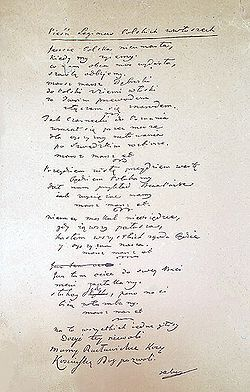 Pieśń Legionów Polskich we Włoszech
Jeszcze Polska nie umarła,
kiedy my żyjemy
co nam obca moc wydarła,
szablą odbijemy.
marsz marsz Dąbrowski
do Polski z ziemi włoski
za Twoim przewodem
złączem się z narodem.
Jak Czarnecki do Poznania
wracał się przez morze
dla ojczyzny ratowania
po Szwedzkim rozbiorze.
marsz marsz et
Przejdziem Wisłę przejdziem Wartę
będziem Polakami
dał nam przykład Bonaparte
jak zwyciężać mamy
marsz marsz et
niemiec moskal nie osiędzie,
gdy jąwszy pałasza,
hasłem wszystkich zgoda będzie
y ojczyzna nasza.
marsz marsz et
Już tam ociec do swej Basi
mówi zapłakany
słuchaj jeno, pono nasi
biją w tarabany.
marsz marsz et
na to wszystkich jedne głosy
Dosyć tej niewoli
Mamy Racławickie Kosy
Kościuszkę Bóg pozwoli.